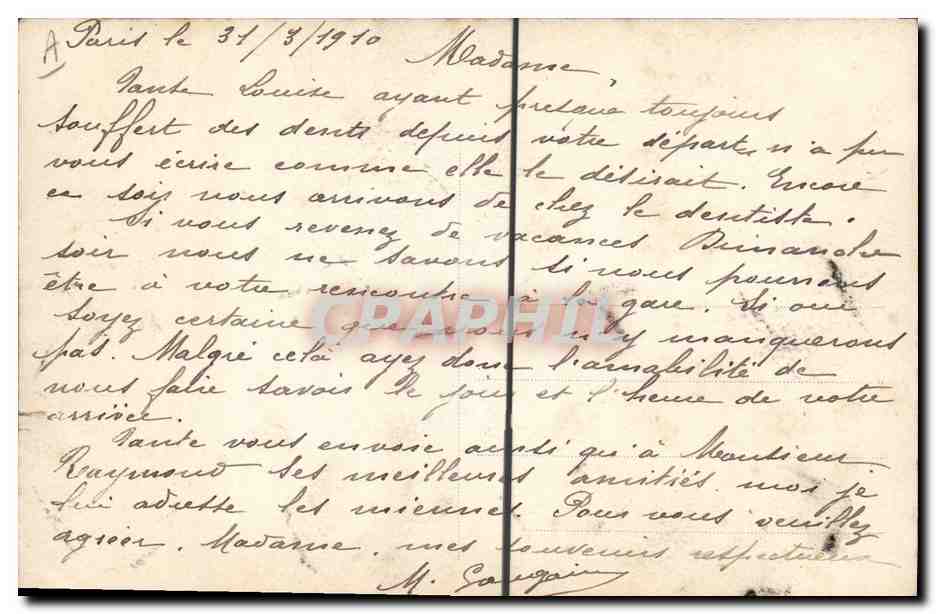 A
Paris le 31/3/1910
Madame,
Tante Louise ayant presque toujours
souffert des dents depuis votre départ, n'a pu
vous écrire comme elle le désirait. Encore
ce soir nous arrivons de chez le dentiste.
Si vous revenez de vacances Dimanche
soir nous ne savons si nous pourrons
être à votre rencontre à la gare. Si oui
soyez certaine que nous n'y manquerons
pas. Malgré cela ayez donc l'amabilité de
nous faire savoir le jour et l'heure de votre
arrivée.
Tante vous envoie ainsi qu'à Monsieur
Raymond ses meilleures amitiés, moi je
lui adresse les miennes. Pour vous veuillez
agréer, Madame, mes souvenirs respectueux
M.
CPAPHIL